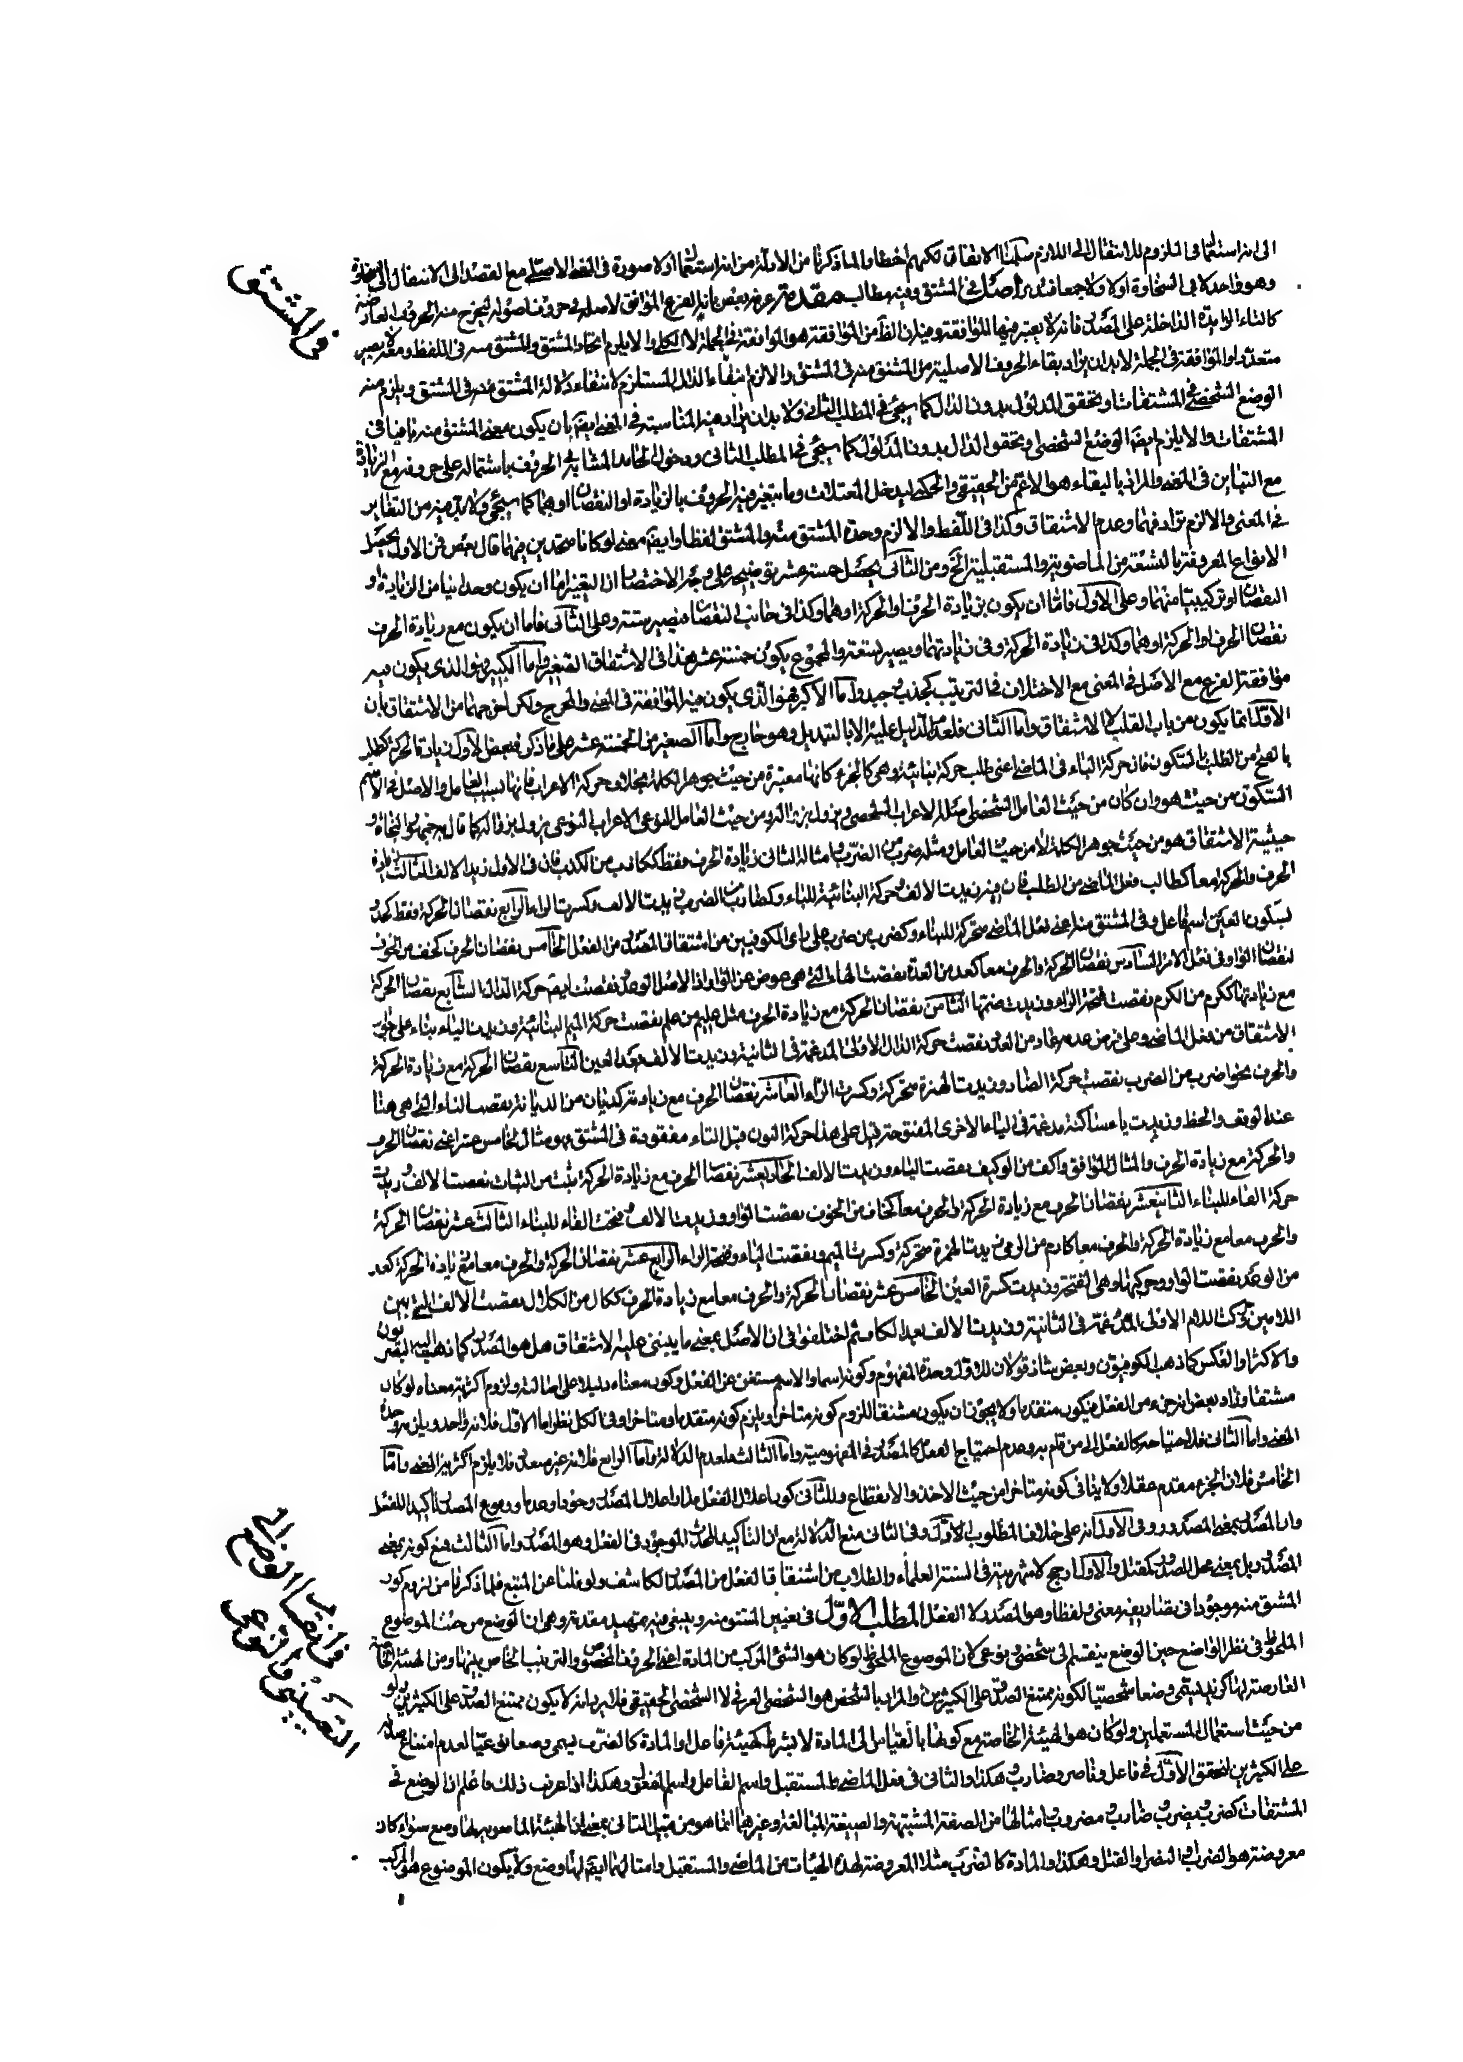 في المشتق
الى انه استعمل في الملزوم للانتقال الى اللازم سلمنا الاتفاق لكنهم اخطاوا لما ذكرنا من الادلة من انه استعمال او لا صورة في المعنى الاصلي مع القصد الى الانتقال الى
وهو واحد لا في السخاوة اولا ولا جمعا فتدبر اصل في المشتق وفيه مطالب مقدمة عرفه بعض بانه الفرع الموافق لاصله في حروف اصوله ليخرج منه الحروف العارضة
كالتاء الزايدة الداخلة على المصدر فانه لا يعتبر فيها الموافقة وفيه ان المراد من الموافقة هو الموافقة في الجملة لا الكلي والا يلزم اتحاد المشتق والمشتق منه في اللفظ
متعددا والموافقة في الجملة لا بد ان يراد بقاء الحروف الاصلية من المشتق منه في المشتق والا لزم انتفاء الدال المستلزم لانتفاء دلالة المشتق منه في المشتق ويلزم منه
الوضع الشخصي في المشتقات او تحقق المدلول بدون الدال كما سيجئ في المطلب الثاني ولا بد ان يراد فيه المناسبة في المعنى ايضا بان يكون معنى المشتق منه باقيا في
المشتقات والا يلزم ايضا الوضع الشخصي او تحقق الدال بدون المدلول كما سيجئ في المطلب الثاني ودخول الجامد المشابه في الحروف باشتماله على حروفه مع الزيادة
مع التباين في المعنى والمراد بالبقاء هو الاعم من الحقيقي والحكمي ليدخل المعتلات وما يتغير فيه الحروف بالزيادة او النقصان او هما كما سيجئ ولا بد فيه من التغاير
في المعنى والا لزم ترادفهما وعدم الاشتقاق وكذا في اللفظ والا لزم وحدة المشتق منه والمشتق لفظا وايضا معنى لو كانا متحدين فيهما قال بعض فمن الاول يحصل
الانواع المعروفة بالتسعة من الماضوية والمستقبلية الخ ومن الثاني يحصل خمسة عشر توضيحه على وجه الاختصار ان التغير اما ان يكون وحدانيا من الزيادة او
النقصان او تركيبيا منهما وعلى الاول فاما ان يكون بزيادة الحرف او الحركة او هما وكذا في جانب النقصان فيصير ستة وعلى الثاني فاما ان يكون مع زيادة الحرف
نقصان الحرف او الحركة او هما وكذا في زيادة الحركة وفي زيادتهما ويصير تسعة والمجموع يكون خمسة عشر هذا في الاشتقاق الصغير واما الكبير فهو الذي يكون فيه
موافقة الفرع مع الاصل في المعنى مع الاختلاف في الترتيب كجذب وجبد واما الاكبر فهو الذي يكون فيه الموافقة في المعنى والمخرج ولكن اخرجهما من الاشتقاق بان
الاول انما يكون من باب القلب لا الاشتقاق واما الثاني فلعدم الدليل عليه الا بالتبديل وهو خارج واما الصغير من الخمسة عشر على ما ذكره بعض الاول زيادة الحركة كطلب
بالفتح من الطلب بالسكون فان حركة الباء في الماضي اعني طلب حركة بنائية وهي كالجزء كانها معتبرة من حيث جوهر الكلمة بخلاف حركة الاعراب فانها بسبب العامل والاصل في الاسم
السكون من حيث هو وان كان من حيث العامل الشخصي مثلا له الاعراب الشخصي ويزول بزواله ومن حيث العامل النوعي الاعراب النوعي يزول بزواله كما قال به جمهور النحاة و
حيثية الاشتقاق هو من حيث جوهر الكلمة لا من حيث العامل ومثله ضرب من الضرب وامثاله الثاني زيادة الحرف فقط ككاذب من الكذب فان في الاول زيد الالف الثالث زيادة
الحرف والحركة معا كطالب فعل الماضي من الطلب فان فيه زيدت الالف وحركة البنائية للباء وكضارب من الضرب زيدت الالف وكسرت الراء الرابع نقصان الحركة فقط
بسكون العين اسم فاعل وفي المشتق منه اعني فعل الماضي متحركة للبناء وكضرب من ضرب على راي الكوفيين من اشتقاق المصدر من الفعل الخامس نقصان الحرف كخف من الخوف
نقصان الواو في فعل الامر السادس نقصان الحركة والحرف معا كعد من العدة نقصت الهاء التي هي عوض عن الواو اذ الاصل الوعد ونقصت ايضا حركة الدال السابع نقصان الحركة
مع زيادتها ككرم من الكرم نقصت فتحة الراء وزيدت ضمتها الثامن نقصان الحركة مع زيادة الحرف مثل عليم من علم نقصت حركة الميم البنائية وزيدت الياء بناء على
الاشتقاق من فعل الماضي وعلى فرض عدمه عاد من العد نقصت حركة الدال الاولى المدغمة في الثانية وزيدت الالف بعد العين التاسع نقصان الحركة مع زيادة الحركة
والحرف نحو اضرب من الضرب نقصت حركة الضاد وزيدت الهمزة متحركة وكسرت الراء العاشر نقصان الحرف مع زيادته كديان من الديانة نقصت التاء التي هي هاء
عند الوقف والخط وزيدت ياء ساكنة مدغمة في الياء الاخرى المفتوحة قيل على هذا حركة النون قبل التاء مفقودة في المشتق فهو مثال الخامس عشر اعني نقصان الحرف
والحركة مع زيادة الحرف والمثال الموافق واكف من الوكيف نقصت الياء وزيدت الالف الحاديعشر نقصان الحرف مع زيادة الحركة كثبت من الثبات نقصت الالف وزيدت
حركة التاء للبناء الثانيعشر نقصان الحرف مع زيادة الحركة والحرف معا كخاف من الخوف نقصت الواو وزيدت الالف وفتحت الفاء للبناء الثالث عشر نقصان الحركة
والحرف معا مع زيادة الحركة والحرف معا كارم من الرمي زيدت الهمزة متحركة وكسرت الميم ونقصت الياء وفتحة الراء الرابع عشر نقصان الحركة والحرف معا مع زيادة الحركة كعد
من الوعد نقصت الواو وحركتها وهي الفتحة وزيدت كسرة العين الخامس عشر نقصان الحركة والحرف معا مع زيادة الحرف ككال من الكلال نقصت الالف التي بين
اللامين وحركت اللام الاولى المدغمة في الثانية وزيدت الالف بعد الكاف ثم اختلفوا في ان الاصل بمعنى ما يبتنى عليه الاشتقاق هل هو المصدر كما ذهب اليه البصريون
والاكثر او العكس كما ذهب الكوفيون وبعض شاذ قولان للاول وحدة المفهوم وكونه اسما والاسم مستغن عن الفعل وكون معناه دليلا على اصالته ولزوم اكثرية معناه لو كان
مشتقا وزاد بعض انه جزء من الفعل فيكون متقدما ولا يجوز ان يكون مشتقا للزوم كونه متاخرا ويلزم كونه متقدما ومتاخرا وفي الكل نظر اما الاول فلانه واحد ويلزم وحدة
المعنى واما الثاني فلاحتياجه كالفعل الى من قام به وعدم احتياج الفعل كالمصدر في المفهومية واما الثالث فلعدم الدلالة واما الرابع فلانه غير معلل فلا يلزم اكثرية المعنى واما
الخامس فلان الجزء مقدم عقلا ولا ينافي كونه متاخرا من حيث الاخذ والانقطاع وللثاني كون اعلال الفعل مدار اعلال المصدر وجودا وعدما ووقوع المصدر تاكيدا للفعل
وان المصدر بمعنى المصدور وفي الاول انه على خلاف المطلوب لا ادل وفي الثاني منع الدلالة مع ان التاكيد للحدث الموجود في الفعل وهو المصدر واما الثالث فمنع كونه بمعنى
المصدور بل بمعنى محل الصدور كمقتل والاول ارجح لاشهريته في السنة العلماء والطلاب من اشتقاق الفعل من المصدر الكاشف ولو قلنا عن التتبع فلما ذكرنا من لزوم كون
المشتق منه موجودا في مقاديره معنى ولفظا وهو المصدر لا الفعل المطلب الاول في تعيين المشتق منه وينبغي فيه تمهيد مقدمة وهي ان الوضع من حيث الموضوع
في انقسام الوضع الى الشخصي والنوعي
الملحوظ في نظر الواضع حين الوضع ينقسم الى شخصي ونوعي لان الموضوع الملحوظ لو كان هو الشئ المركب من المادة اعني الحروف المخصوص والترتيب الخاص بينها ومن الهيئة الخاصة
العارضة لها كزيد يسمى وضعا شخصيا لكونه ممتنع الصدق على الكثيرين والمراد بالشخص هو الشخصي العرفي لا الشخصي الحقيقي فلا يرد انه لا يكون ممتنع الصدق على الكثيرين ولو
من حيث استعمال المستعملين ولو كان هو الهيئة الخاصة مع كونها بالقياس الى المادة لا بشرط كهيئة فاعل او المادة كالضرب يسمى وضعا نوعيا لعدم امتناع صدقه
على الكثيرين لتحقق الاول في فاعل وناصر وضارب وهكذا والثاني في فعل الماضي والمستقبل واسم الفاعل واسم المفعول وهكذا اذا عرفت ذلك فاعلم ان الوضع في
المشتقات كضرب ويضرب وضارب ومضروب وامثالها من الصفة المشبهة والصيغة المبالغة وغيرهما انما هو من قبيل الثاني بمعنى ان الهيئة الماضوية لها وضع سواء كان
معروضته هو الضرب او النصر او القتل وهكذا والمادة كالضرب مثلا المعروضة لهذه الهيئات من الماضي والمستقبل وامثالهما ايضا لها وضع ولا يكون الموضوع هو المركب